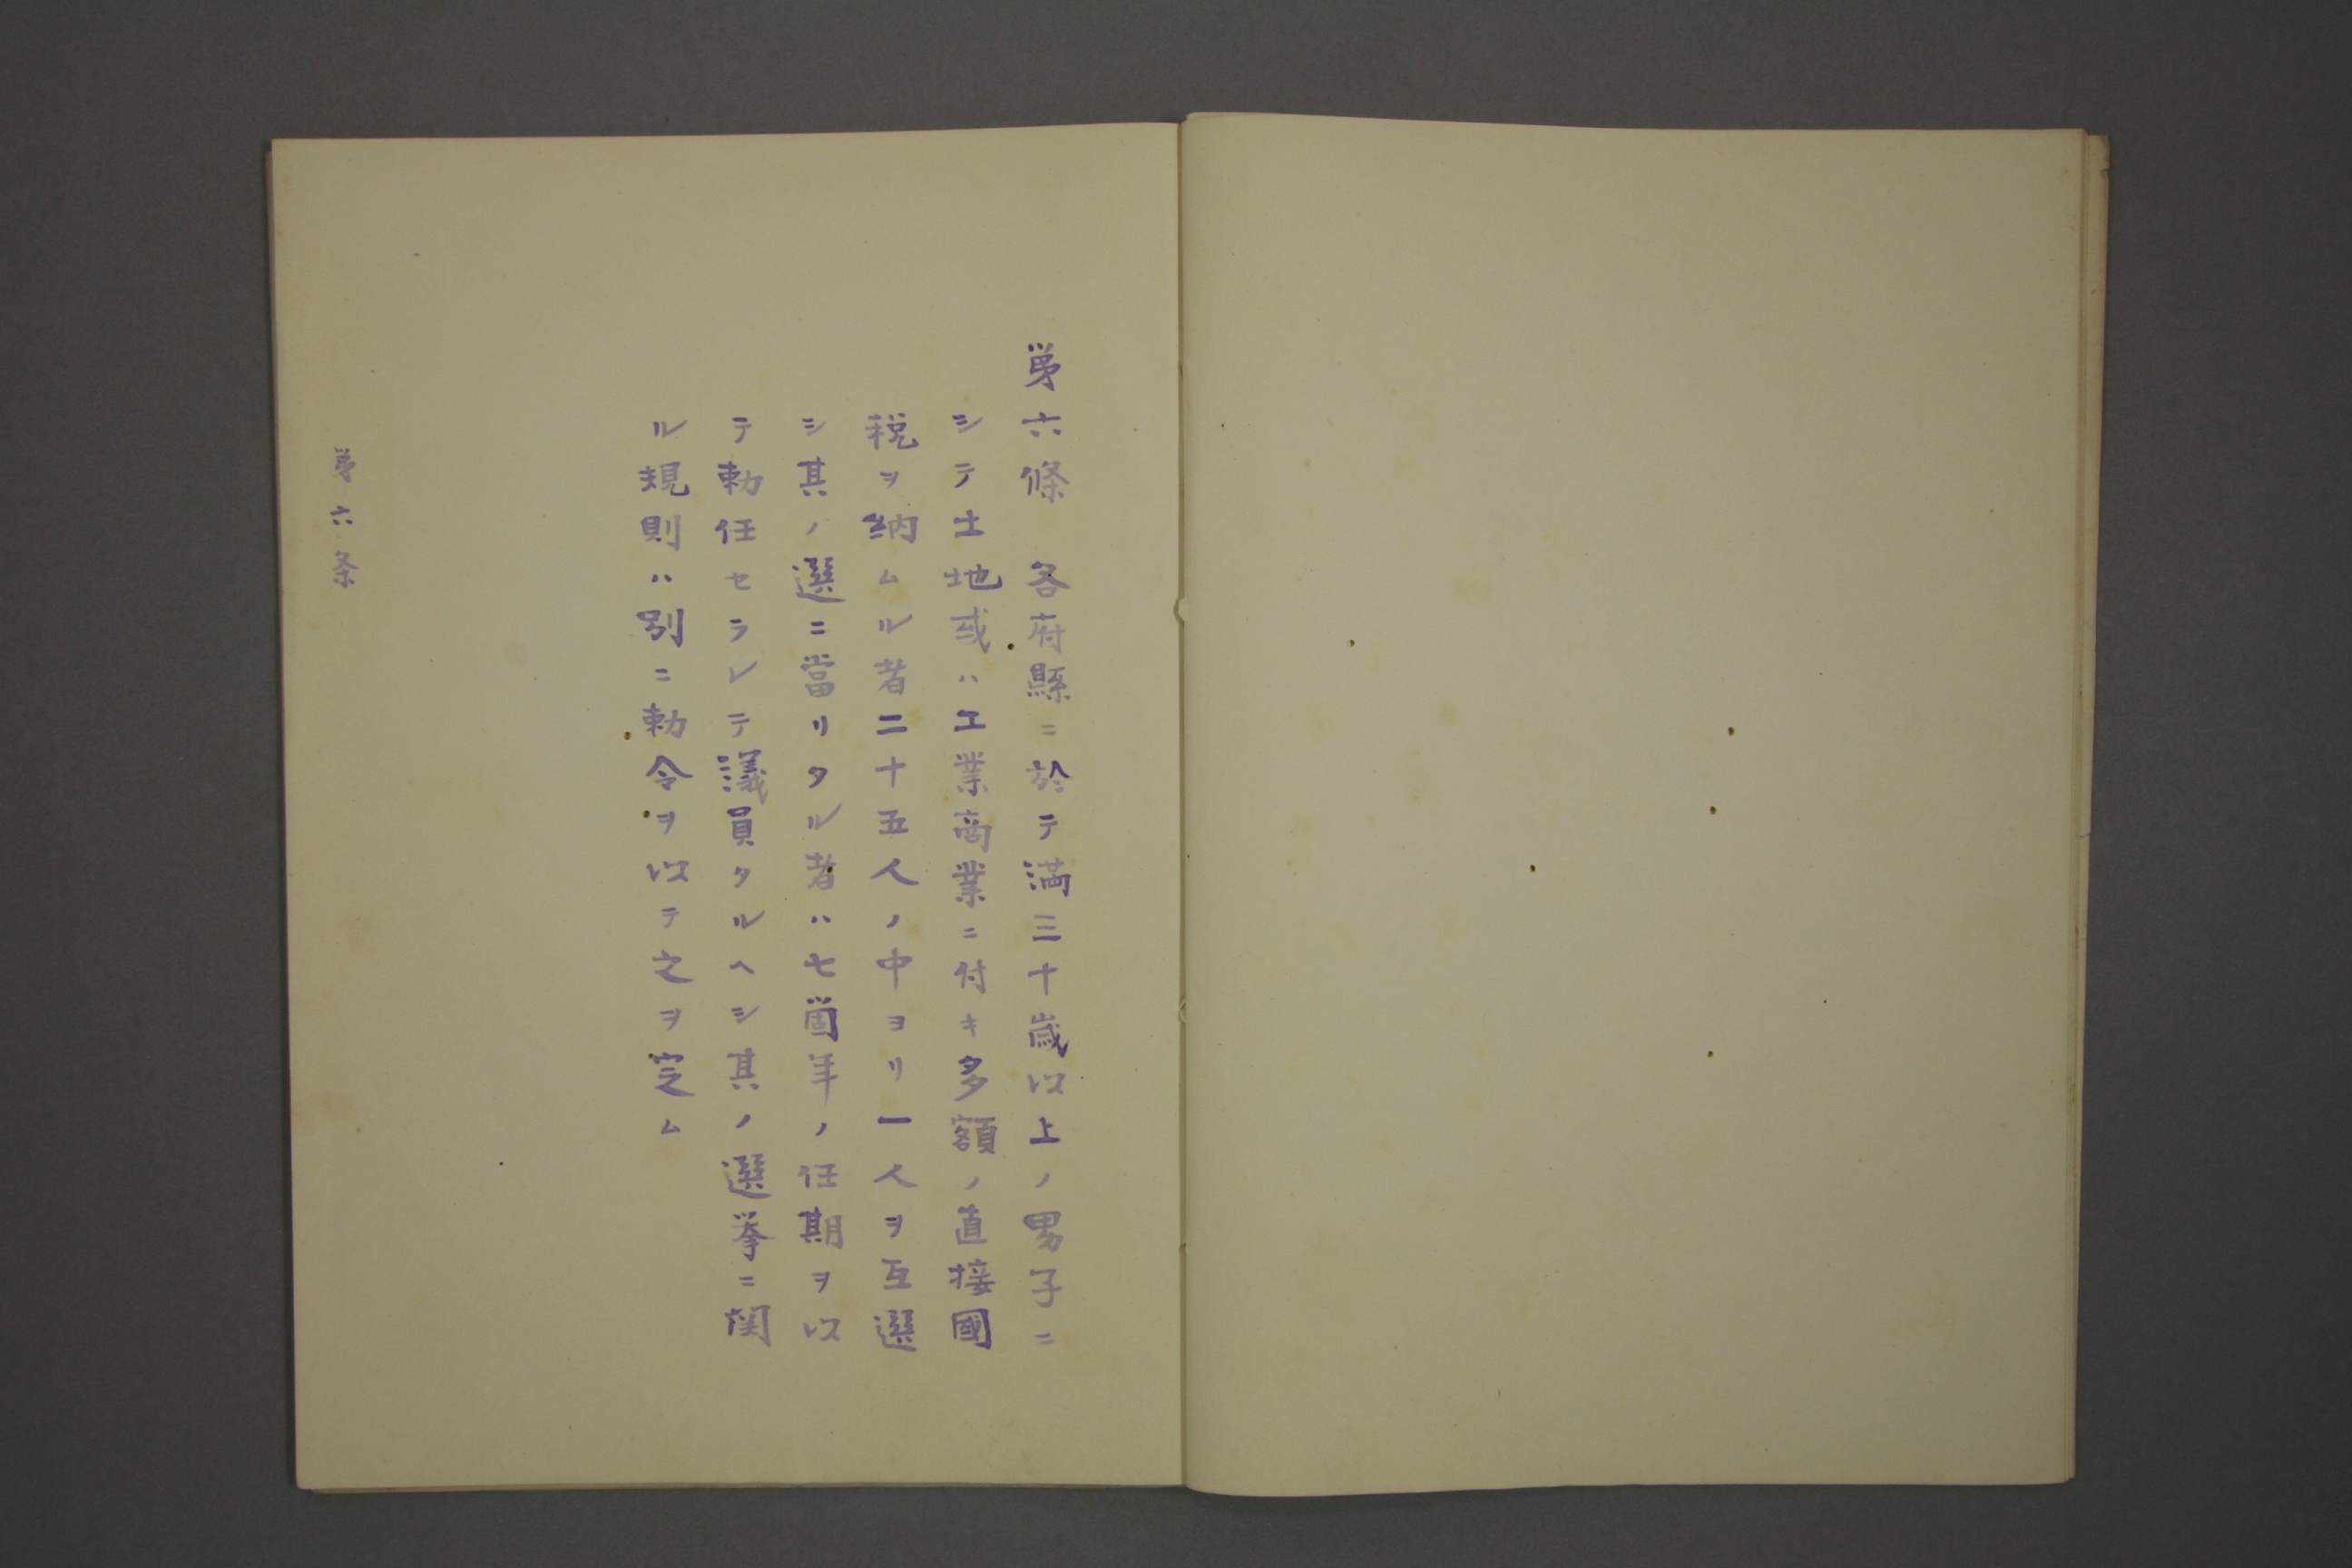 第六條　各府縣ニ於テ満三十歳以上ノ男子ニ
シテ土地或ハ工業商業ニ付キ多額ノ直接國
税ヲ納ムル者二十五人ノ中ヨリ一人ヲ互選
シ其ノ選ニ當リタル者ハ七箇年ノ任期ヲ以
テ勅任セラレテ議員タルヘシ其ノ選挙ニ関
ル規則ハ別ニ勅令ヲ以テ之ヲ定ム
第六条